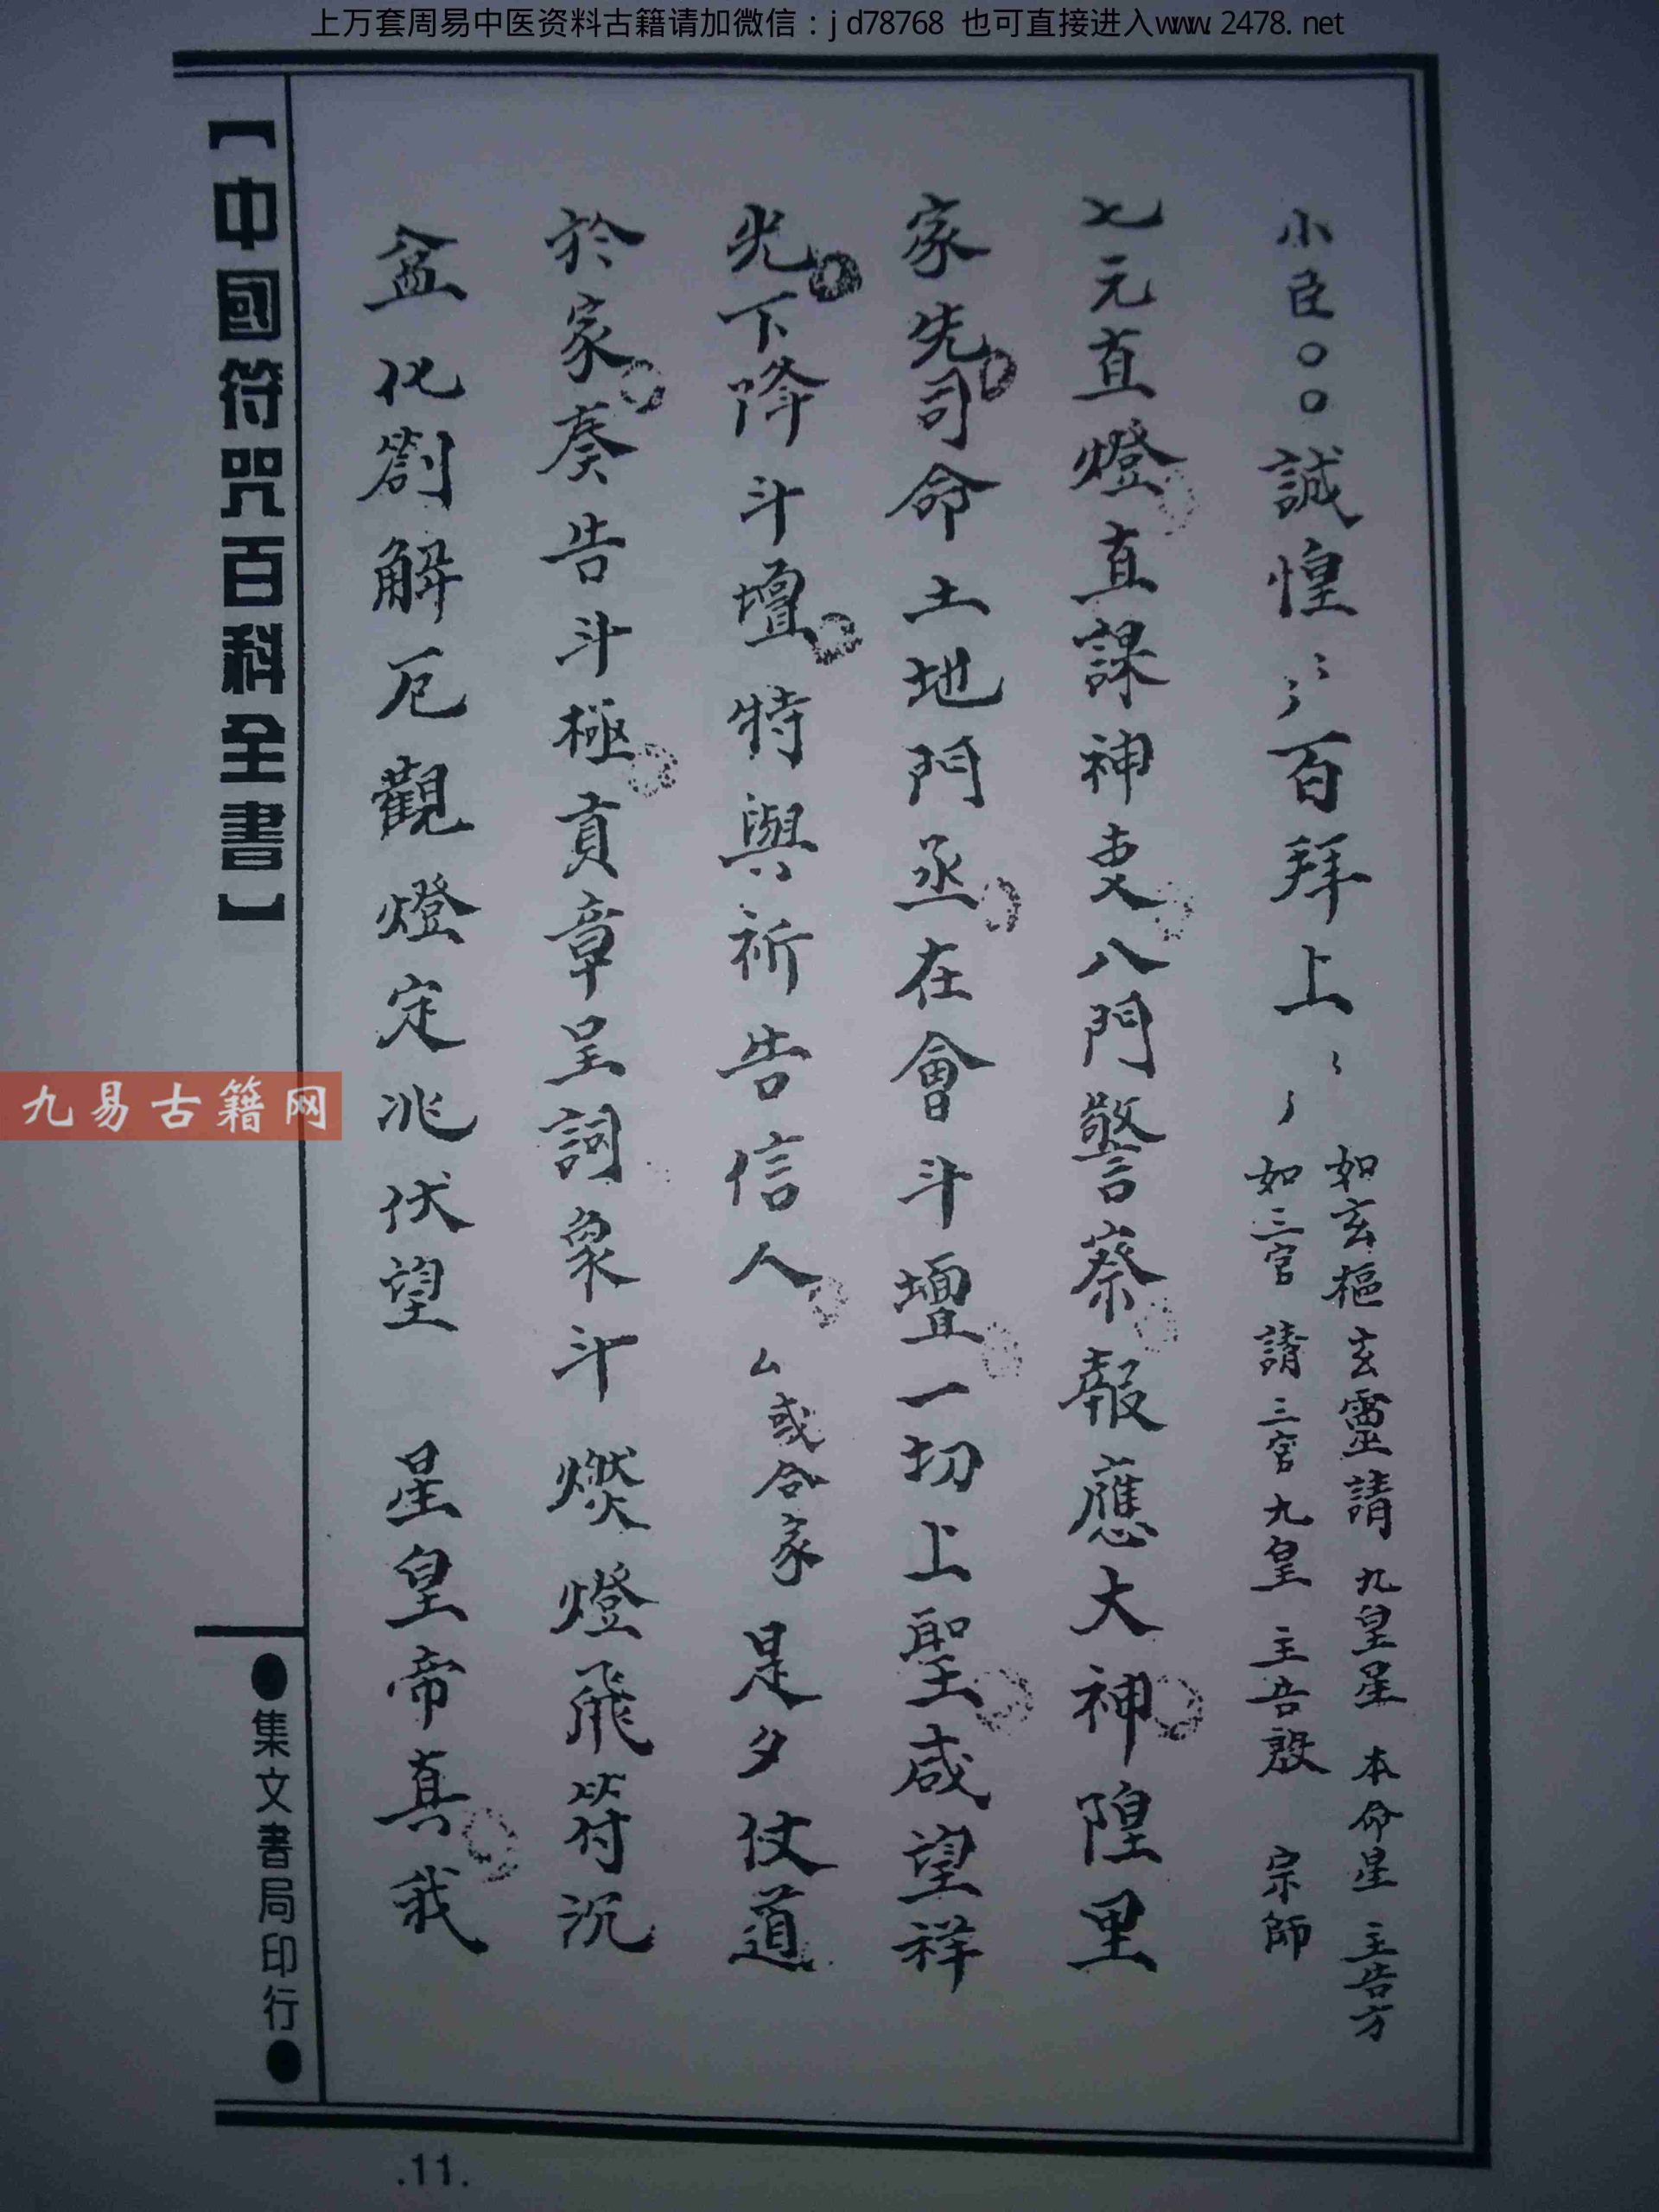 上万套周易中医资料古籍请加微信：jd78768 也可直接进入www.2478.net
小臣○○誠惶〻〻百拜上〻〻
如玄樞玄靈請九皇星 本命星 主告方
如三官 請三官九皇 主告啟 宗師
七元直燈直課神吏八門警察報應大神隍里
家先司命土地門丞在會斗壇一切上聖咸望祥
光下降斗壇特與祈告信人厶或合家是夕仗道
於家奏告斗極貢章呈詞象斗燃燈飛符沉
盆化劄解厄觀燈定兆伏望 星皇帝真我
【中國符咒百科全書】
●集文書局印行●
九易古籍网
.11.